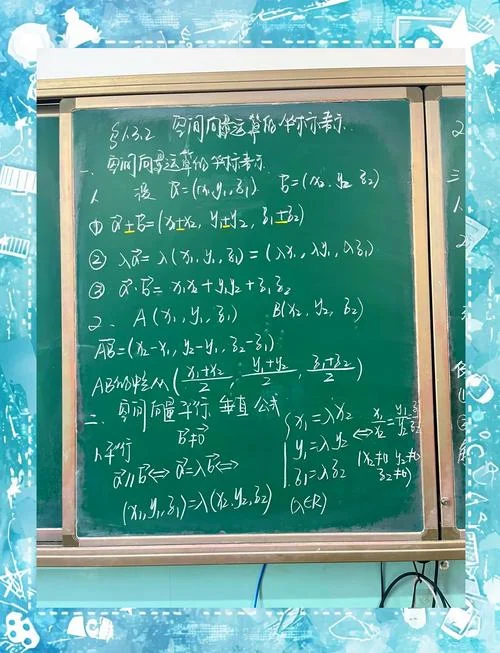 §1.3.2 空间向量运算的坐标表示
一、空间向量运算的坐标表示
1. 设 a⃗=(x₁,y₁,z₁) b⃗=(x₂,y₂,z₂)
① a⃗±b⃗=(x₁±x₂, y₁±y₂, z₁±z₂)
② λa⃗=λ(x₁,y₁,z₁)=(λx₁,λy₁,λz₁)
③ a⃗·b⃗=x₁x₂+y₁y₂+z₁z₂
2. A(x₁,y₁,z₁) B(x₂,y₂,z₂)
AB⃗=(x₂-x₁, y₂-y₁, z₂-z₁)
AB的中点M((x₁+x₂)/2, (y₁+y₂)/2, (z₁+z₂)/2)
二、空间向量平行、垂直公式
1.平行 b⃗≠0⃗
a⃗∥b⃗⇔a⃗=λb⃗⇔
(x₁,y₁,z₁)=λ(x₂,y₂,z₂)
{x₁=λx₂
y₁=λy₂
z₁=λz₂
(λ∈R)
⇔x₁/x₂=y₁/y₂=z₁/z₂
(x₂≠0 y₂≠0
z₂≠0)
2
三
1.
2.